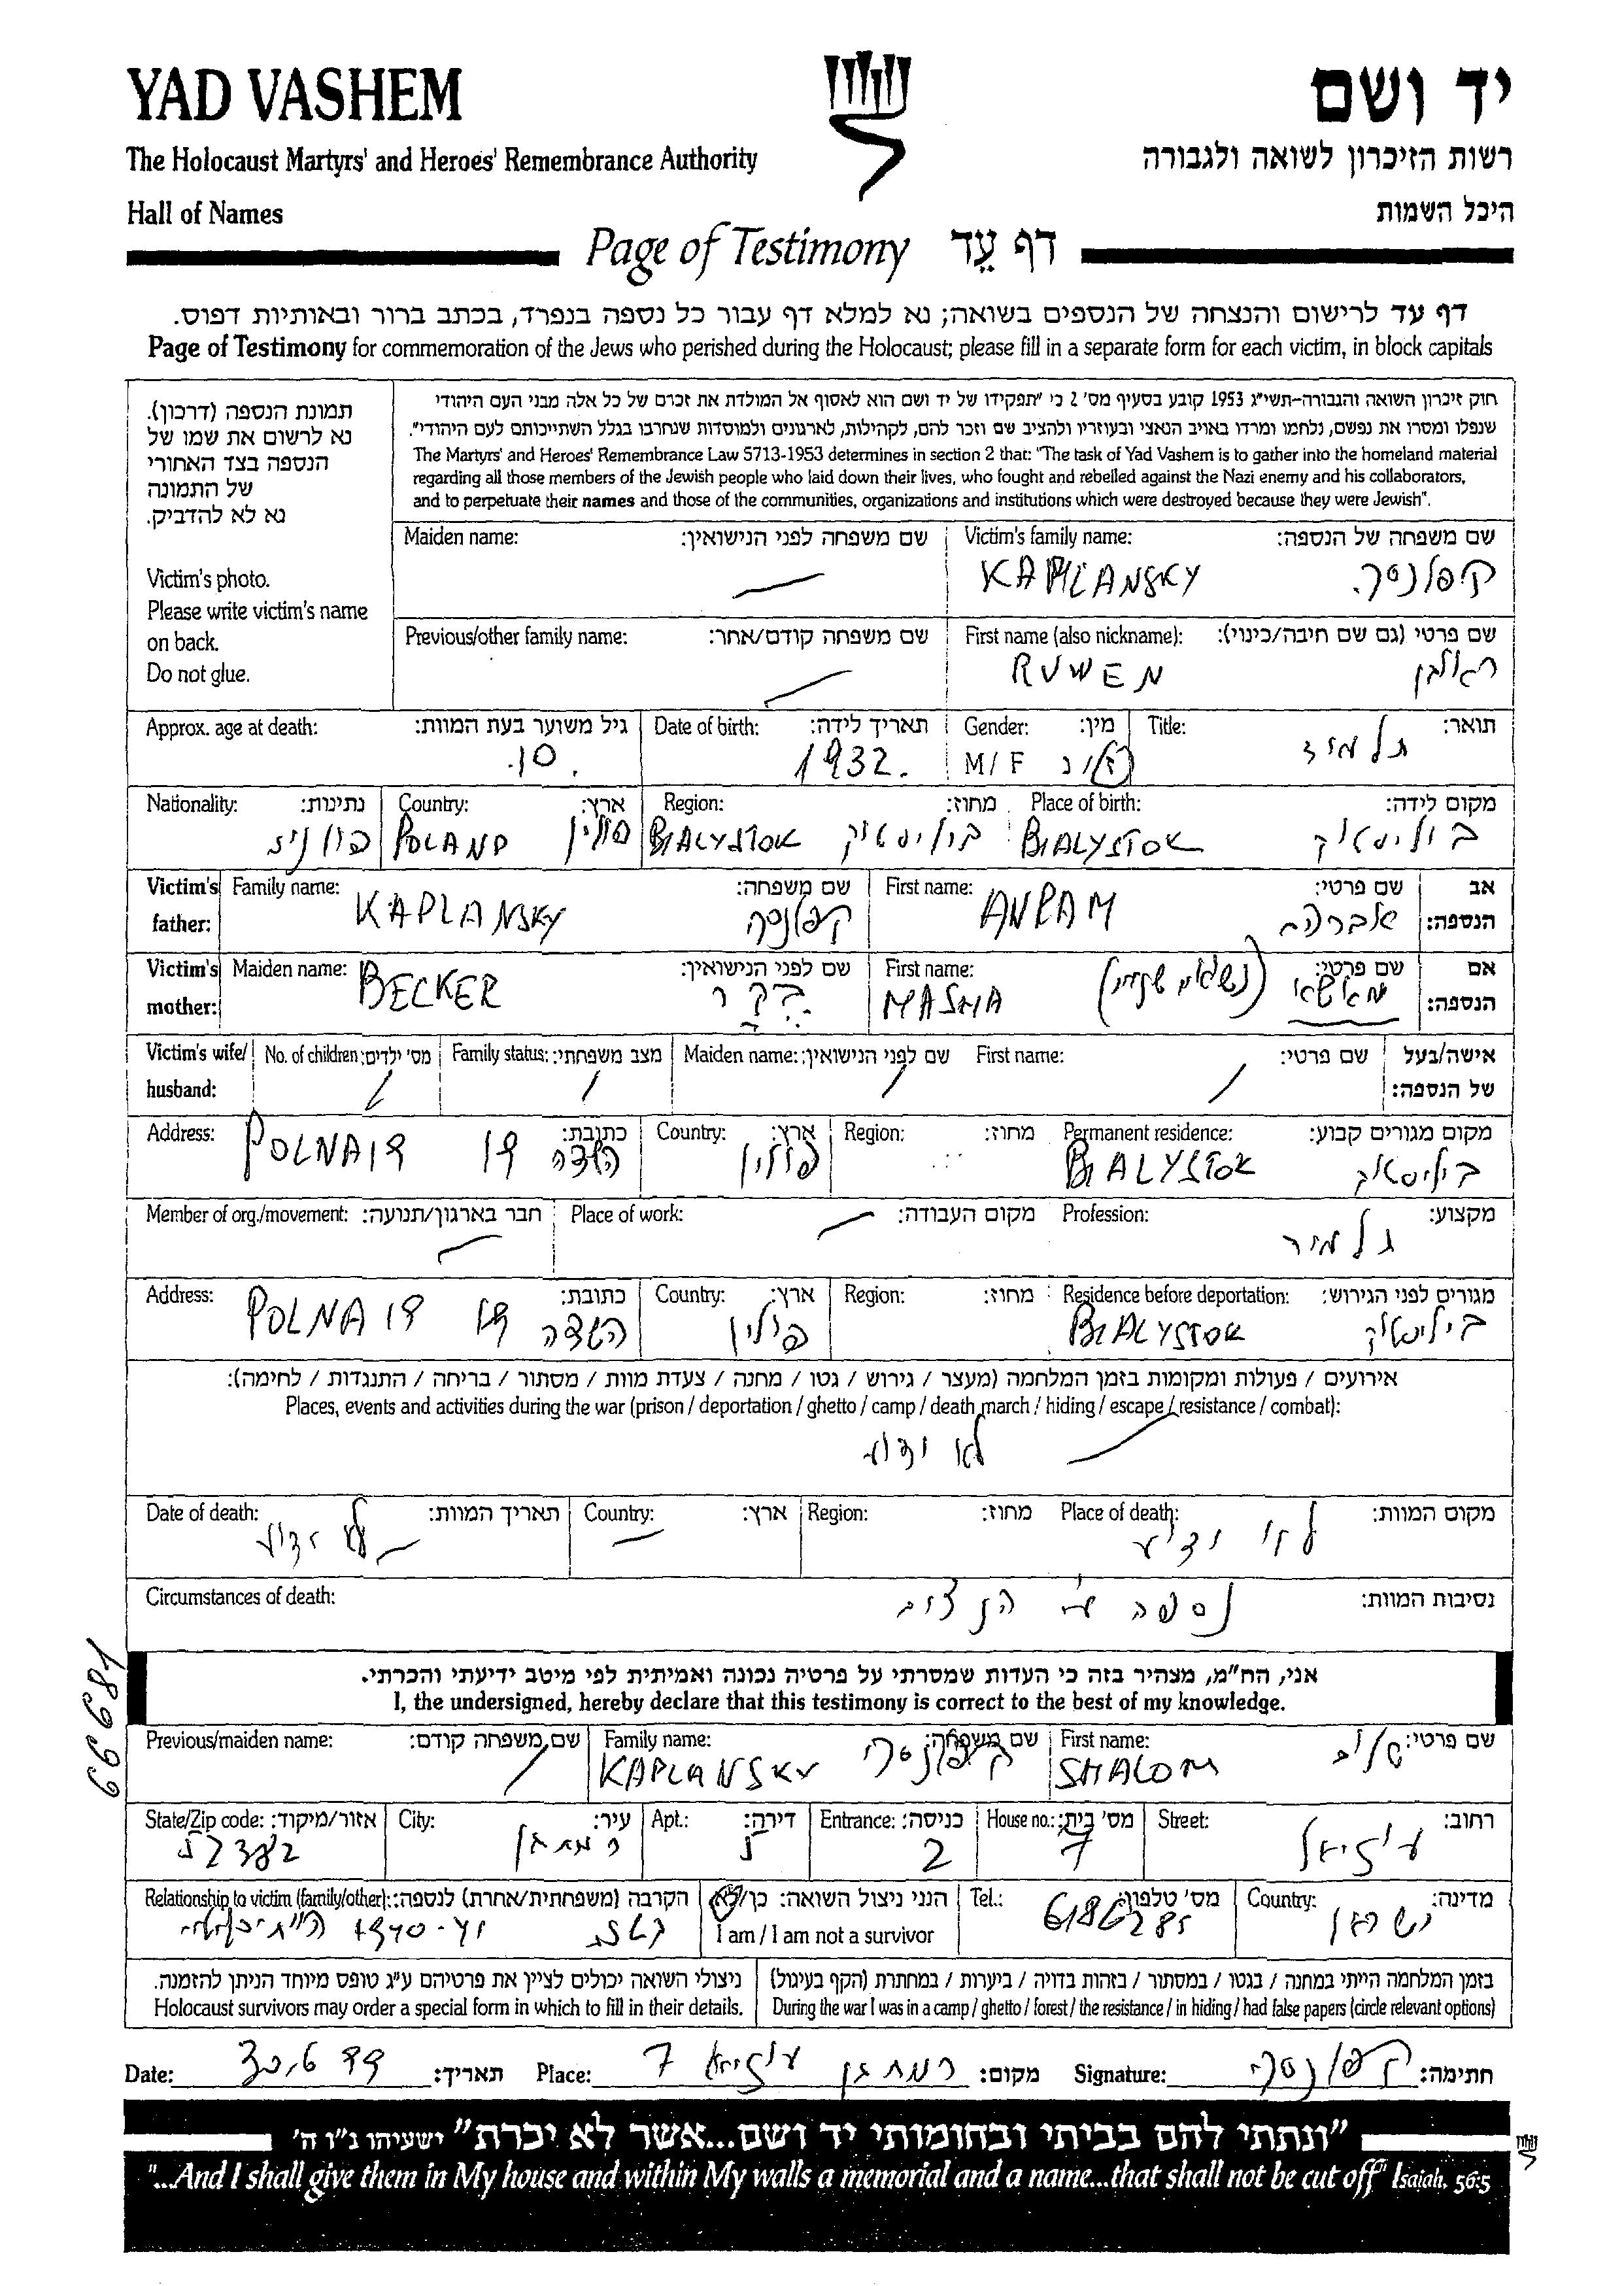 YAD VASHEM
יד ושם
The Holocaust Martyrs' and Heroes' Remembrance Authority
רשות הזיכרון לשואה ולגבורה
Hall of Names
היכל השמות
Page of Testimony דף עֵד
דף עד לרישום והנצחה של הנספים בשואה; נא למלא דף עבור כל נספה בנפרד, בכתב ברור ובאותיות דפוס.
Page of Testimony for commemoration of the Jews who perished during the Holocaust; please fill in a separate form for each victim, in block capitals
תמונת הנספה (דרכון).
נא לרשום את שמו של
הנספה בצד האחורי
של התמונה
נא לא להדביק.
Victim's photo.
Please write victim's name
on back.
Do not glue.
חוק זיכרון השואה והגבורה-תשי"ג 1953 קובע בסעיף מס' 2 כי "תפקידו של יד ושם הוא לאסוף אל המולדת את זכרם של כל אלה מבני העם היהודי
שנפלו ומסרו את נפשם, נלחמו ומרדו באויב הנאצי ובעוזריו ולהציב שם וזכר להם, לקהילות, לארגונים ולמוסדות שנחרבו בגלל השתייכותם לעם היהודי".
The Martyrs' and Heroes' Remembrance Law 5713-1953 determines in section 2 that: "The task of Yad Vashem is to gather into the homeland material
regarding all those members of the Jewish people who laid down their lives, who fought and rebelled against the Nazi enemy and his collaborators,
and to perpetuate their names and those of the communities, organizations and institutions which were destroyed because they were Jewish".
Maiden name: שם משפחה לפני הנישואין: Victim's family name: שם משפחה של הנספה:
KAPLANSKY קפלנסקי
Previous/other family name: שם משפחה קודם/אחר: First name (also nickname): שם פרטי (גם שם חיבה/כינוי):
RUWEN ראובן
Approx. age at death: גיל משוער בעת המוות: Date of birth: תאריך לידה: Gender: מין: Title: תואר:
10 1932 M/F ז/נ תלמיד
Nationality: נתינות: Country: ארץ: Region: מחוז: Place of birth: מקום לידה:
פולנית POLAND פולין BIALYSTOK ביליסטוק BIALYSTOK ביליסטוק
Victim's father: Family name: שם משפחה: First name: שם פרטי: אב הנספה:
KAPLANSKY קפלנסקי אברהם
Victim's mother: Maiden name: שם לפני הנישואין: First name: שם פרטי: אם הנספה:
BECKER בקר MASHA מאשא
Victim's wife/ husband: No. of children: מס' ילדים: Family status: מצב משפחתי: Maiden name: שם לפני הנישואין: First name: שם פרטי: אישה/בעל של הנספה:
Address: כתובת: Country: ארץ: Region: מחוז: Permanent residence: מקום מגורים קבוע:
POLNA 19 השדה 19 פולין BIALYSTOK ביליסטוק
Member of org./movement: חבר בארגון/תנועה: Place of work: מקום העבודה: Profession: מקצוע:
תלמיד
Address: כתובת: Country: ארץ: Region: מחוז: Residence before deportation: מגורים לפני הגירוש:
POLNA 19 השדה 19 פולין BIALYSTOK ביליסטוק
אירועים / פעולות ומקומות בזמן המלחמה (מעצר / גירוש / גטו / מחנה / צעדת מוות / מסתור / בריחה / התנגדות / לחימה):
Places, events and activities during the war (prison / deportation / ghetto / camp / death march / hiding / escape / resistance / combat):
לא ידוע
Date of death: תאריך המוות: Country: ארץ: Region: מחוז: Place of death: מקום המוות:
לא ידוע לא ידוע
Circumstances of death: נסיבות המוות:
נספה
אני, הח"מ, מצהיר בזה כי העדות שמסרתי על פרטיה נכונה ואמיתית לפי מיטב ידיעתי והכרתי.
I, the undersigned, hereby declare that this testimony is correct to the best of my knowledge.
Previous/maiden name: שם משפחה קודם: Family name: שם משפחה: First name: שם פרטי:
KAPLANSKY קפלנסקי SHALOM שלום
State/Zip code: אזור/מיקוד: City: עיר: Apt.: דירה: Entrance: כניסה: House no.: מס' בית: Street: רחוב:
52382 רמת גן 5 2 7 עוזיאל
Relationship to victim (family/other): הקרבה (משפחתית/אחרת) לנספה: הנני ניצול השואה: כן/לא Tel.: מס' טלפון: Country: מדינה:
I am / I am not a survivor 6186285 ישראל
ניצולי השואה יכולים לציין את פרטיהם ע"ג טופס מיוחד הניתן להזמנה. בזמן המלחמה הייתי במחנה / בגטו / במסתור / בזהות בדויה / ביערות / במחתרת (הקף בעיגול)
Holocaust survivors may order a special form in which to fill in their details. During the war I was in a camp / ghetto / forest / the resistance / in hiding / had false papers (circle relevant options)
Date: 30.6.99 תאריך: Place: רמת גן עוזיאל 7 מקום: Signature: קפלנסקי חתימה:
"ונתתי להם בביתי ובחומותי יד ושם...אשר לא יכרת" ישעיהו נ"ו ה'
"...And I shall give them in My house and within My walls a memorial and a name...that shall not be cut off" Isaiah, 56:5